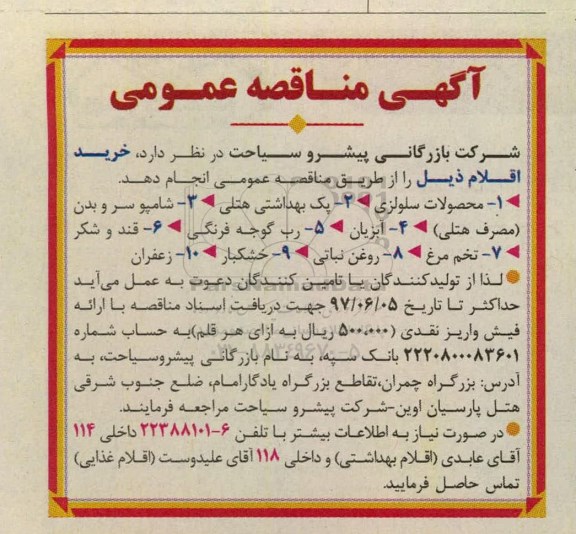 آگهـی مناقصه عمـومی
شـرکت بازرگانـی پیشـرو سـیاحت در نظـر دارد، خریـد
اقـلام ذیـل را از طریـق مناقصـه عمومـی انجـام دهـد.
۱- محصولات سلولزی ۲- پک بهداشتی هتلی ۳- شامپو سر و بدن
(مصرف هتلی) ۴- آبزیان ۵- رب گوجه فرنگی ۶- قند و شکر
۷- تخم مرغ ۸- روغن نباتی ۹- خشکبار ۱۰- زعفران
لـذا از تولیدکننـدگان یـا تامیـن کننـدگان دعـوت به عمـل می‌آیـد
حداکثـر تـا تاریـخ ۹۷/۰۶/۰۵ جهـت دریافـت اسـناد مناقصـه با ارائـه
فیـش واریـز نقـدی (۵۰۰،۰۰۰ ریـال بـه ازای هـر قلم)بـه حسـاب شـماره
۲۲۲۰۸۰۰۰۸۳۶۰۱ بانـک سـپه، بـه نـام بازرگانـی پیشروسـیاحت، بـه
آدرس: بزرگـراه چمران،تقاطـع بزرگـراه یادگارامـام، ضلـع جنـوب شـرقی
هتـل پارسـیان اوین-شـرکت پیشـرو سـیاحت مراجعـه فرماینـد.
در صـورت نیـاز بـه اطلاعـات بیشـتر بـا تلفـن ۶-۲۲۳۸۸۱۰۱ داخلی ۱۱۴
آقای عابدی (اقلام بهداشتی) و داخلی ۱۱۸ آقای علیدوست (اقلام غذایی)
تماس حاصل فرمایید.